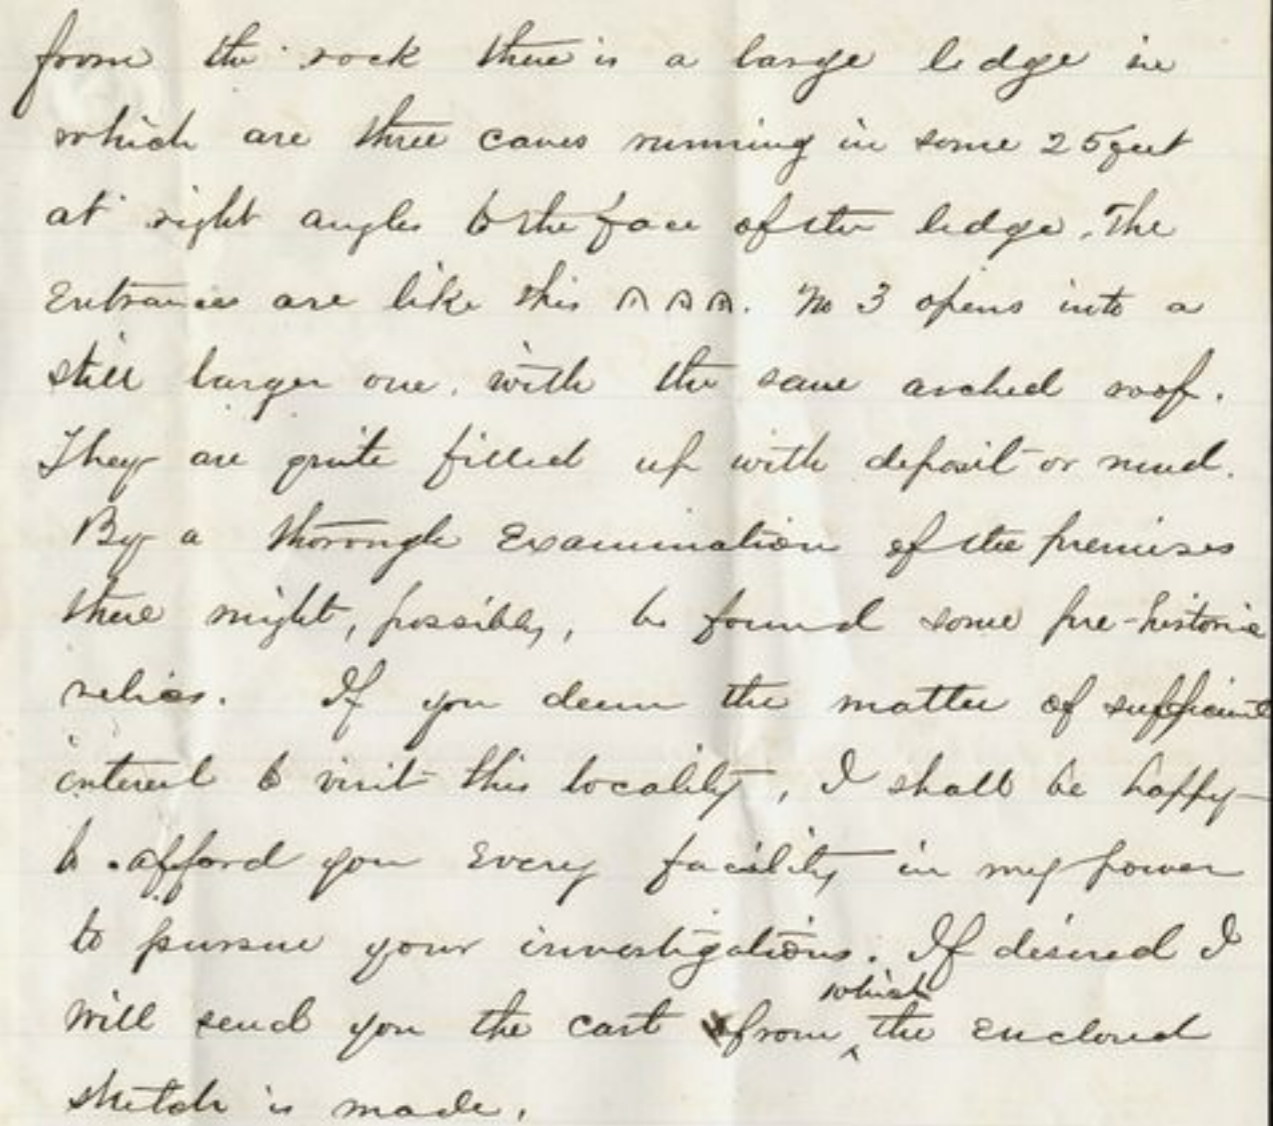 from the rock there is a large ledge in
which are three caves running in some 25 feet
at right angles to the face of the ledge. The
Entrances are like this ∩ ∩ ∩. No 3 opens into a
still larger one, with the same arched roof.
They are quite filled up with deposit or mud.
By a thorough Examination of the premises
there might, possibly, be found some pre-historic
relics. If you deem the matter of sufficient
interest to visit this locality, I shall be happy
to afford you Every facility in my power
to pursue your investigations. If desired I
will send you the cast from which the Enclosed
sketch is made.